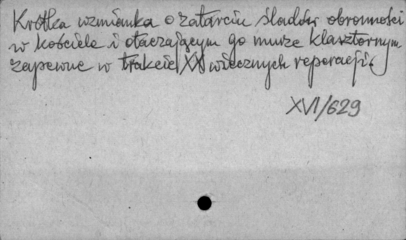 Krótka wzmianka o zatarciu śladów obronności
w kościele i otaczającym go murze klasztornym
zapewne w trakcie XX wiecznych reperacji.
XVI/629